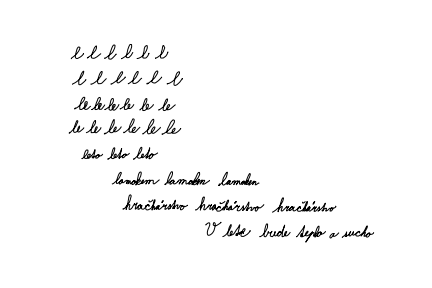 l l l l l l
l l l l l l
le le le le le le
le le le le le le
leto leto leto
lamokem lamokem lamokem
hračkárstvo hračkárstvo hračkárstvo
V lete bude teplo a sucho